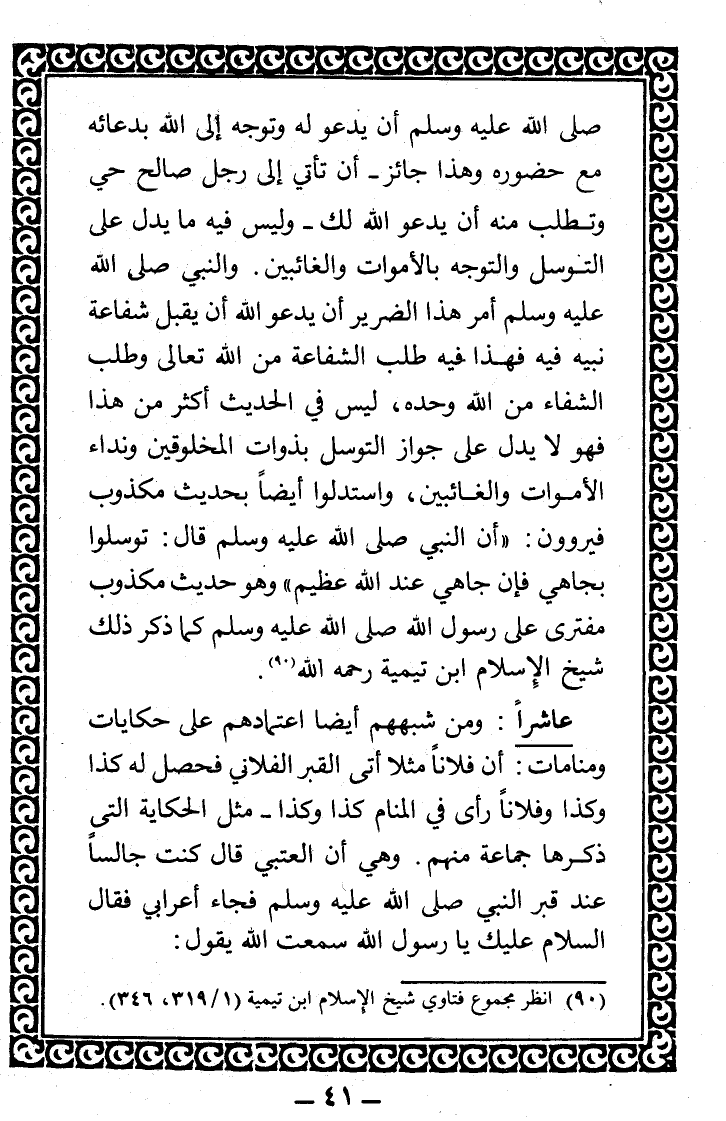 صلى الله عليه وسلم أن يدعو له وتوجه إلى الله بدعائه
مع حضوره وهذا جائز ـ أن تأتي إلى رجل صالح حي
وتطلب منه أن يدعو الله لك ـ وليس فيه ما يدل على
التوسل والتوجه بالأموات والغائبين. والنبي صلى الله
عليه وسلم أمر هذا الضرير أن يدعو الله أن يقبل شفاعة
نبيه فيه فهذا فيه طلب الشفاعة من الله تعالى وطلب
الشفاء من الله وحده، ليس في الحديث أكثر من هذا
فهو لا يدل على جواز التوسل بذوات المخلوقين ونداء
الأموات والغائبين، واستدلوا أيضاً بحديث مكذوب
فيروون: «أن النبي صلى الله عليه وسلم قال: توسلوا
بجاهي فإن جاهي عند الله عظيم» وهو حديث مكذوب
مفترى على رسول الله صلى الله عليه وسلم كما ذكر ذلك
شيخ الإسلام ابن تيمية رحمه الله(٩٠).
عاشراً : ومن شبههم أيضا اعتمادهم على حكايات
ومنامات: أن فلاناً مثلا أتى القبر الفلاني فحصل له كذا
وكذا وفلاناً رأى في المنام كذا وكذا ـ مثل الحكاية التى
ذكرها جماعة منهم. وهي أن العتبي قال كنت جالساً
عند قبر النبي صلى الله عليه وسلم فجاء أعرابي فقال
السلام عليك يا رسول الله سمعت الله يقول:
(٩٠) انظر مجموع فتاوي شيخ الإسلام ابن تيمية (٣١٩/١، ٣٤٦).
ـ ٤١ ـ